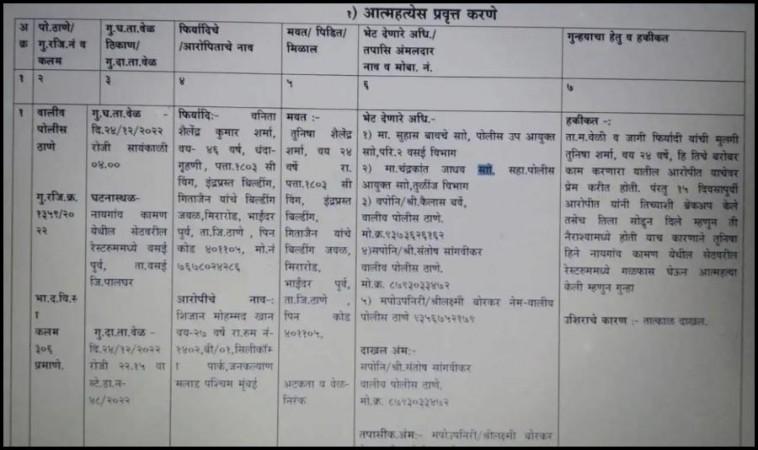 १) आत्महत्येस प्रवृत्त करणे
अ क्र
पो.ठाणे/
गु.रजि.नं व
कलम
गु.घ.ता.वेळ
ठिकाण/
गु.दा.ता.वेळ
फिर्यादिचे
/आरोपिताचे नाव
मयत/ पिडित/
मिळाल
भेट देणारे अधि./
तपासि अंमलदार
नाव व मोबा. नं.
गुन्हयाचा हेतु व हकीकत
१
२
३
४
५
६
७
१
वालीव
पोलीस
ठाणे
गु.रजि.क्र.
१३५९/२
०२२
भा.द.वि.स
ा
कलम
३०६
प्रमाणे.
गु.घ.ता.वेळ -
दि.२४/१२/२०२२
रोजी सायंकाळी
०४.००
घटनास्थळ-
नायगांव कामण
येथील सेटवरील
रेस्टरुममध्ये वसई
पुर्व, ता.वसई
जि.पालघर
गु.दा.ता.वेळ -
दि.२४/१२/२०२२
रोजी २२.१५ वा
स्टे.डा.न-
४८/२०२२
फिर्यादि:- वनिता
शैलेंद्र कुमार शर्मा,
वय- ४६ वर्ष, धंदा-
गृहणी, पत्ता.१८०३ सी
विंग, इंद्रप्रस्त बिल्डींग
गिताजैन यांचे बिल्डिंग
जवळ,मिरारोड, भाईंदर
पुर्व, ता.जि.ठाणे , पिन
कोड ४०११०५, मो.नं
७६७८०२४२८६
आरोपीचे नाव:-
शिजान मोहम्मद खान
वय-२७ वर्षे रा.रुम नं-
१४०२,बी/०१,सिलीकॉम
ा पार्क,जनकल्याण
मलाड पश्चिम मुंबई
मयत :-
तुनिषा शैलेंद्र
शर्मा, वय २४
वर्षे रा.
पत्ता.१८०३ सी
विंग, इंद्रप्रस्त
बिल्डिंग,
गिताजैन यांचे
बिल्डिंग जवळ,
मिरारोड,
भाईंदर पुर्व,
ता.जि.ठाणे ,
पिन कोड
४०११०५,
अटकता व वेळ-
निरंक
भेट देणारे अधि.-
१) मा. सुहास बावचे साो, पोलीस उप आयुक्त
साो,परि.२ वसई विभाग
२) मा.चंद्रकांत जाधव साो, सहा.पोलीस
आयुक्त साो,तुळींज विभाग
३) वपोनि/श्री.कैलास बर्वे,
वालीव पोलीस ठाणे.
मो.क्र.९३७३६२६१६२
४)मपोनि/श्री.संतोष सांगवीकर
वालीव पोलीस ठाणे.
मो.क्र. ८७९३०३३४७२
५) मपोउपनिरी/श्रीलक्ष्मी बोरकर नेम-वालीव
पोलीस ठाणे ९३५६७५२१७९
दाखल अंम:-
मपोनि/श्री.संतोष सांगवीकर
वालीव पोलीस ठाणे.
मो.क्र. ८७९३०३३४७२
तपासीक.अंम:- मपोउपनिरी/श्रीलक्ष्मी बोरकर
हकीकत :-
ता.म.वेळी व जागी फिर्यादी यांची मुलगी
तुनिषा शर्मा, वय २४ वर्षे, हि तिचे बरोबर
काम करणारा यातील आरोपीत याचेवर
प्रेम करीत होती. परंतु १५ दिवसापुर्वी
आरोपीत यांनी तिच्याशी ब्रेकअप केले
तसेच तिला सोडुन दिले म्हणुन ती
नैराश्यामध्ये होती याच कारणाने तुनिषा
हिने नायगांव कामण येथील सेटवरील
रेस्टरुममध्ये गळफास घेऊन आत्महत्या
केली म्हणुन गुन्हा
उशिराचे कारण :- तात्काळ दाखल.